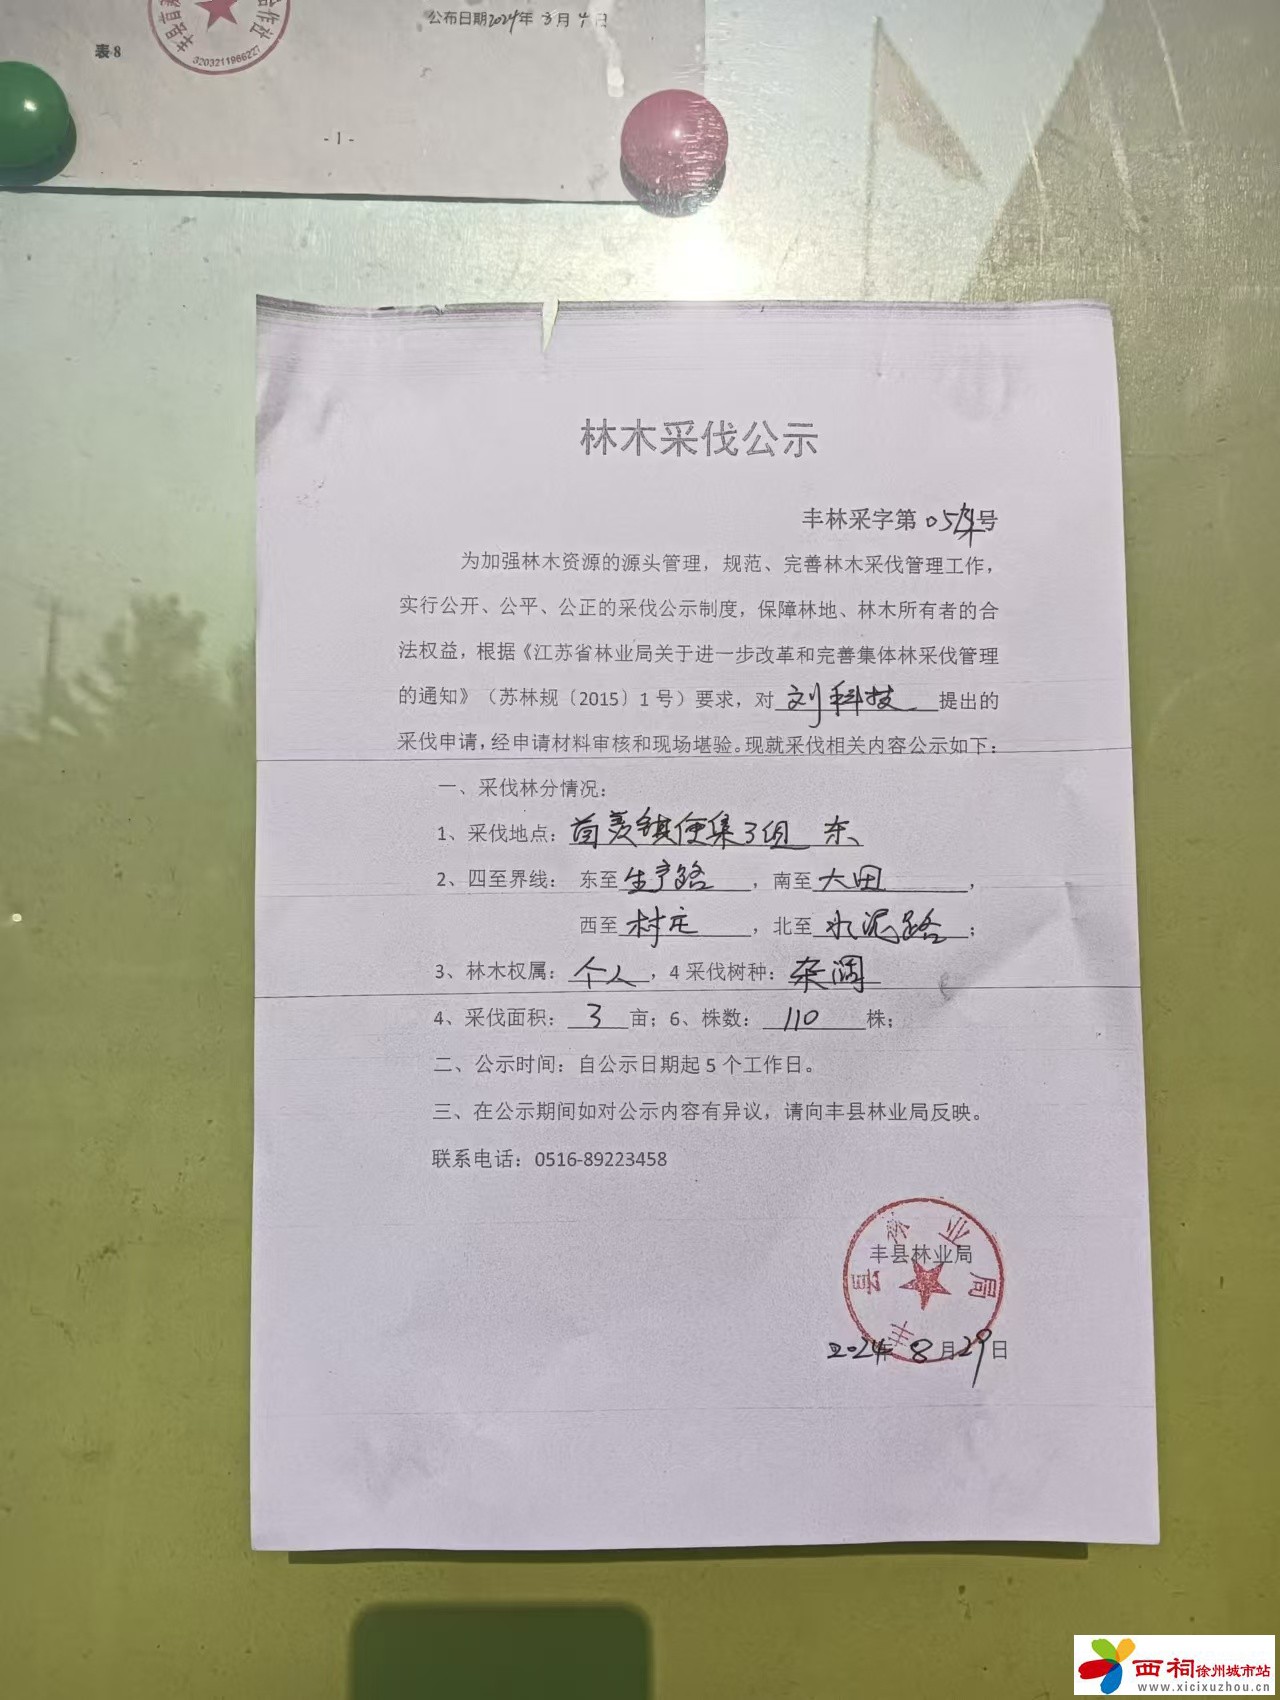 公布日期2024年3月4日
表8
3203211986227
-1-
林木采伐公示
丰林采字第 05 号
为加强林木资源的源头管理，规范、完善林木采伐管理工作，
实行公开、公平、公正的采伐公示制度，保障林地、林木所有者的合
法权益，根据《江苏省林业局关于进一步改革和完善集体林采伐管理
的通知》（苏林规〔2015〕1号）要求，对 刘科技 提出的
采伐申请，经申请材料审核和现场堪验。现就采伐相关内容公示如下：
一、采伐林分情况：
1、采伐地点：首羡镇便集3组 东
2、四至界线： 东至生产路，南至大田，
西至村庄，北至水泥路；
3、林木权属：个人，4采伐树种：杂阔
4、采伐面积：3亩；6、株数：110株；
二、公示时间：自公示日期起5个工作日。
三、在公示期间如对公示内容有异议，请向丰县林业局反映。
联系电话：0516-89223458
丰县林业局
丰县林业局
2024年8月29日
西祠徐州城市站
www.xicixuzhou.cn